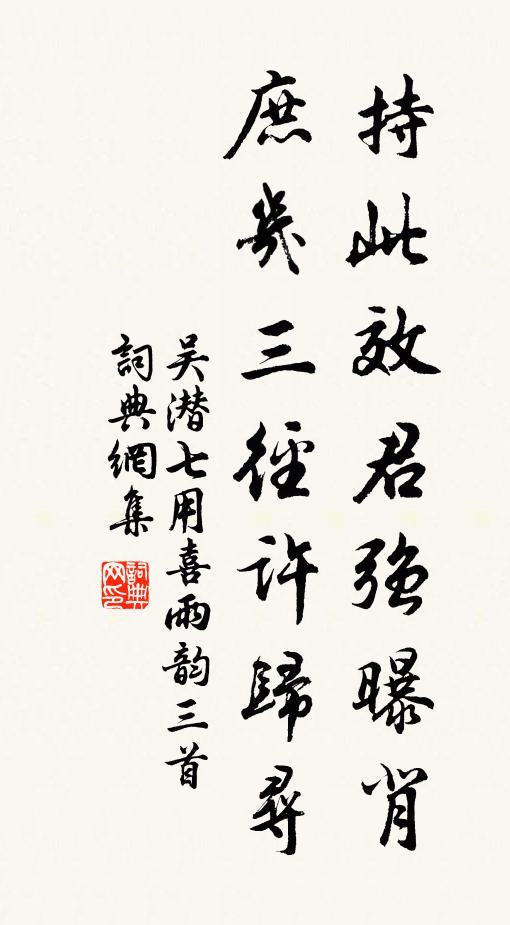 持此效君強曝背
庶幾三徑許歸尋
吴潜七用喜雨韵三首
詞典網集
詞典网印